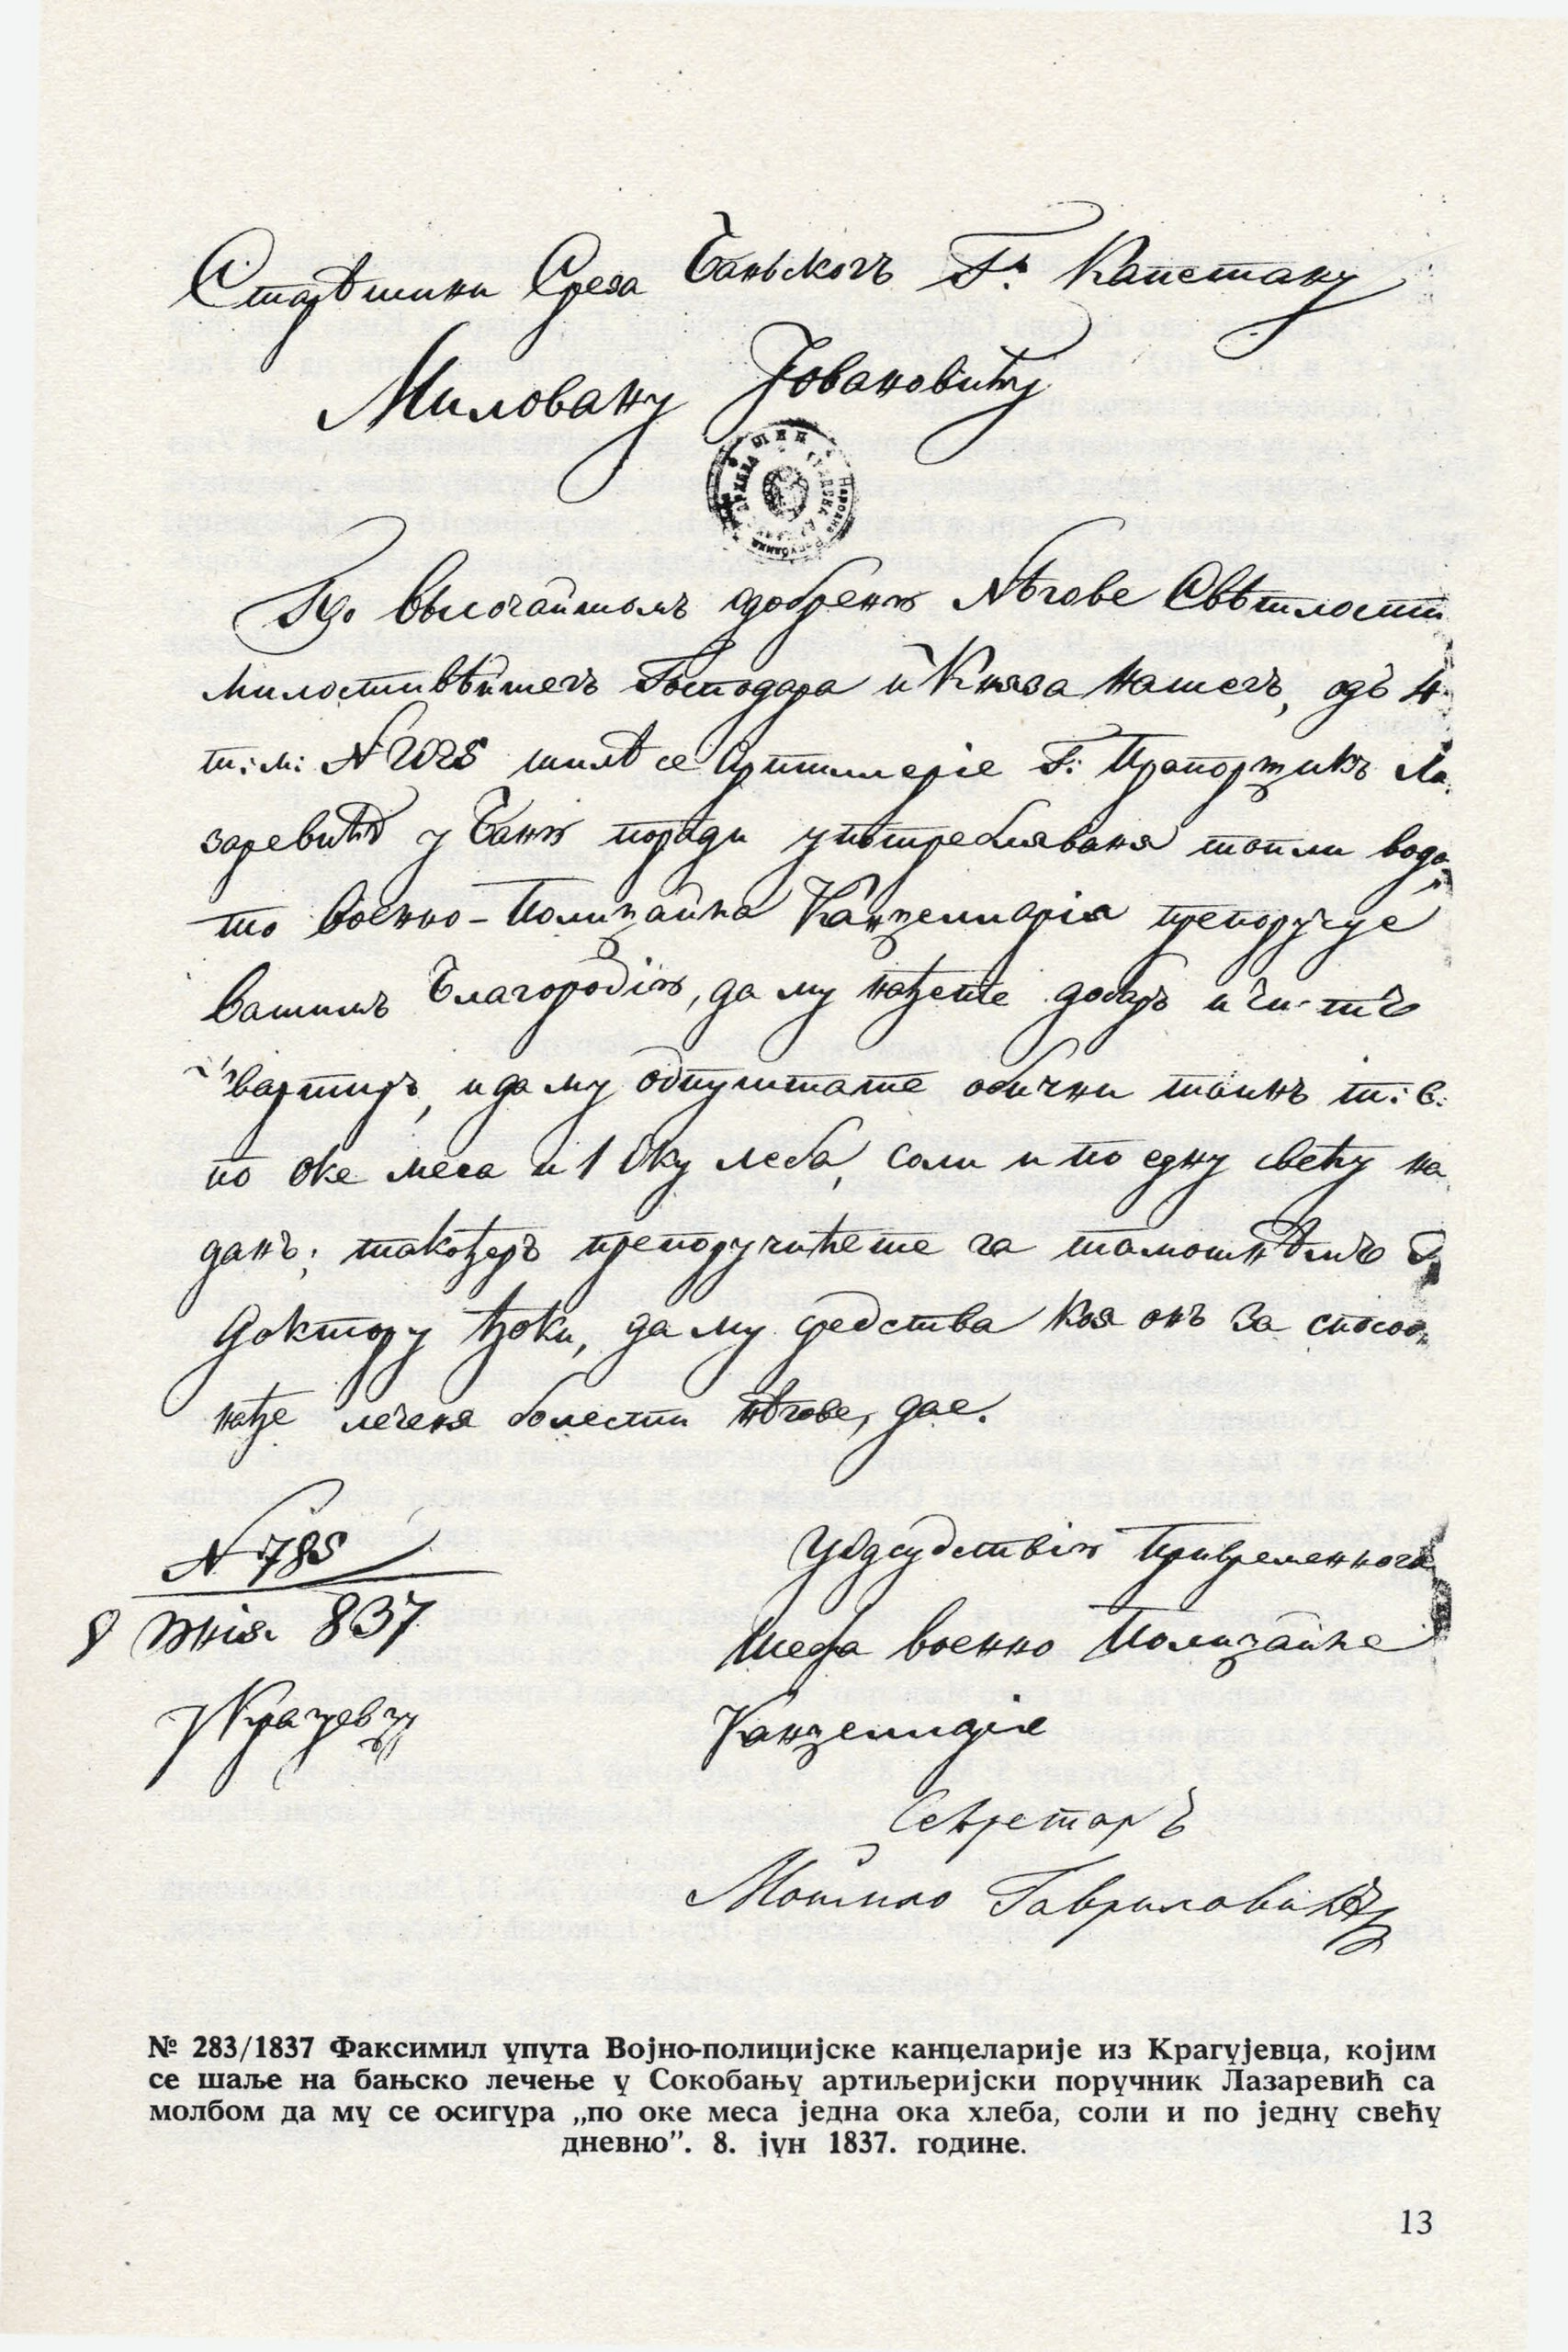 Старѣшини Среза Баньскогъ Гъ. Капетану
Миловану Јовановићу
По Высочайшемъ одобреню Нѣгове Свѣтлости
милостивѣйшегъ Господара и Княза нашегъ, одъ 4
т: м: № 2025 шилѣ се Артиллеріе Г: Прапорщикъ Ла
заревићъ у Баню поради употреблявања топли вода
то Военно-Полицайна Канцелларіа препоручуе
Вашемъ Благородію, да му нађете добаръ и чистъ
квартиръ, и да му одпуштате обични таинъ т: е:
по оке меса и 1 оку леба, соли и по едну свећу на
данъ; такођеръ препоручићете га тамошнѣмъ Г.
Доктору Ђоки, да му средства коя онъ за способн
нађе леченя болести нѣгове, дае.
№ 785
8 Юнія 837
у Крагуевцу
У одсудствію Привременнога
Шефа военно Полицайне
Канцелларіе
Секретаръ
Гавриловићъ
№ 283/1837 Факсимил упута Војно-полицијске канцеларије из Крагујевца, којим
се шаље на бањско лечење у Сокобању артиљеријски поручник Лазаревић са
молбом да му се осигура „по оке меса једна ока хлеба, соли и по једну свећу
дневно”. 8. јун 1837. године.
13